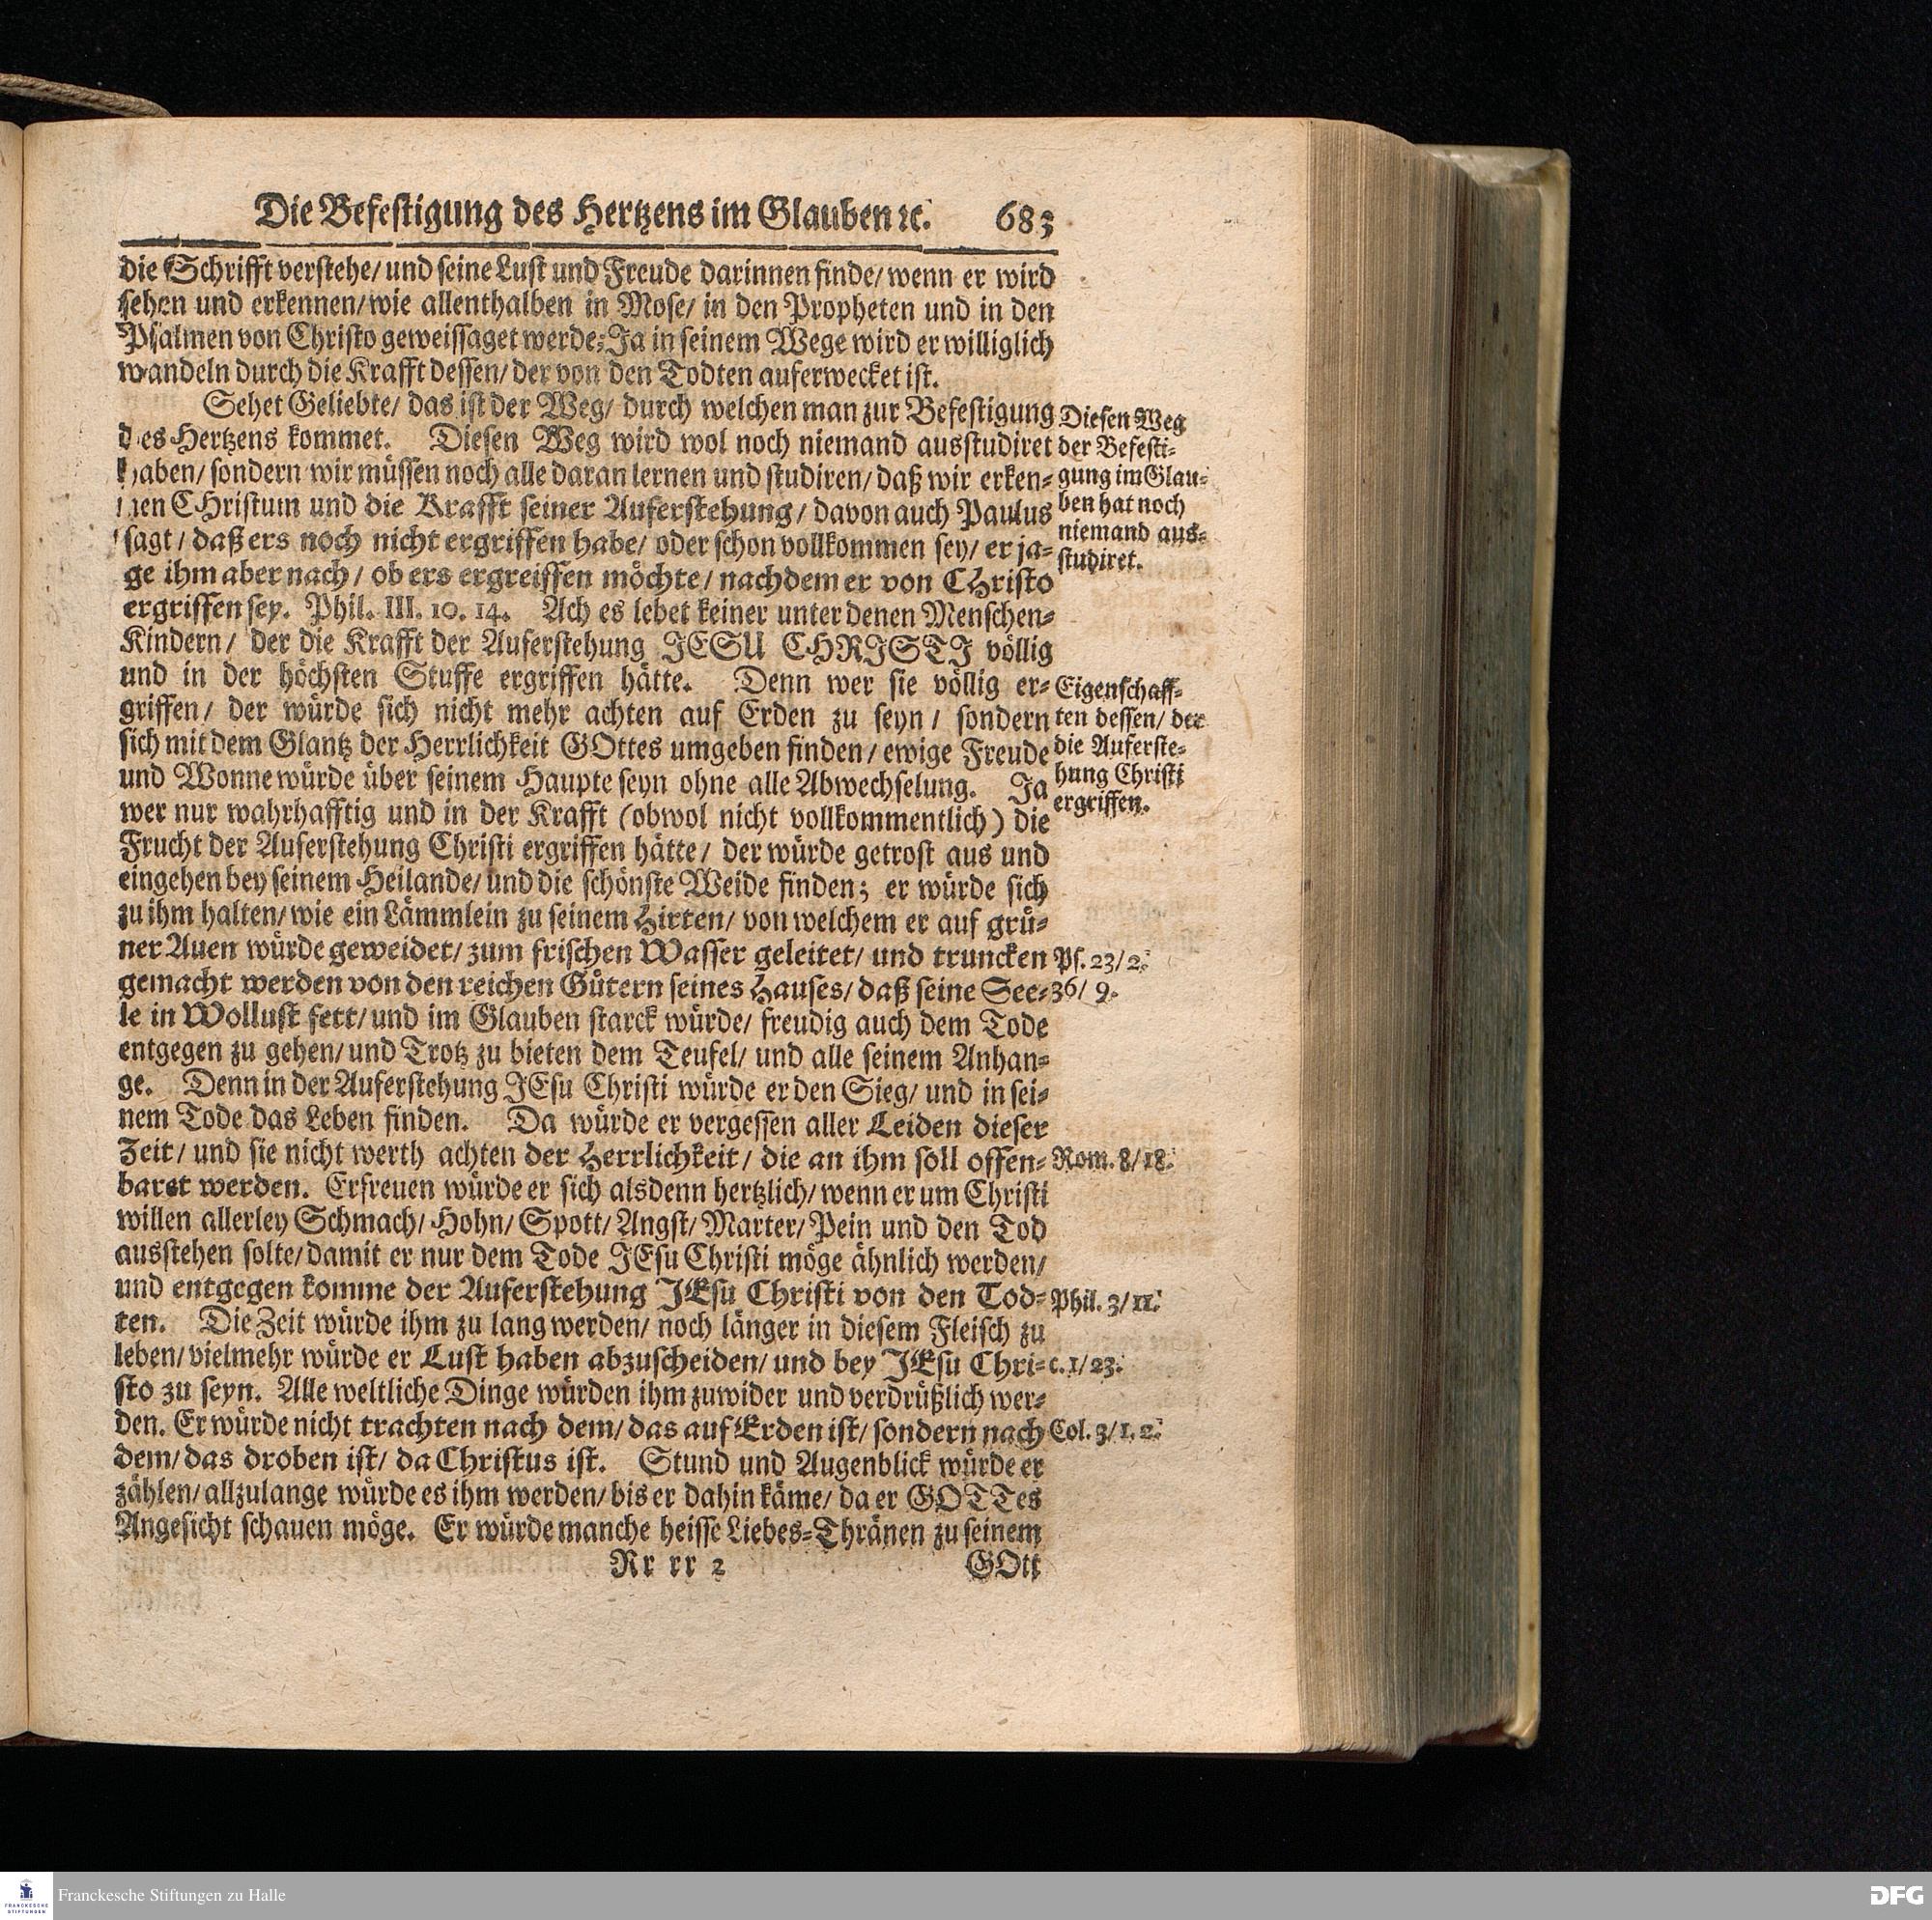 Die Befestigung des Hertzens im Glauben ꝛc. 683
die Schrifft verstehe/ und seine Lust und Freude darinnen finde/ wenn er wird
sehen und erkennen/ wie allenthalben in Mose/ in den Propheten und in den
Psalmen von Christo geweissaget werde; Ja in seinem Wege wird er williglich
wandeln durch die Krafft dessen/ der von den Todten auferwecket ist.
Sehet Geliebte/ das ist der Weg/ durch welchen man zur Befestigung
des Hertzens kommet. Diesen Weg wird wol noch niemand ausstudiret
haben/ sondern wir müssen noch alle daran lernen und studiren/ daß wir erken-
nen CHristum und die Krafft seiner Auferstehung/ davon auch Paulus
sagt/ daß ers noch nicht ergriffen habe/ oder schon vollkommen sey/ er ja-
ge ihm aber nach/ ob ers ergreiffen möchte/ nachdem er von CHristo
ergriffen sey. Phil. III. 10. 14. Ach es lebet keiner unter denen Menschen-
Kindern/ der die Krafft der Auferstehung JESU CHRISTI völlig
und in der höchsten Stuffe ergriffen hätte. Denn wer sie völlig er-
griffen/ der würde sich nicht mehr achten auf Erden zu seyn/ sondern
sich mit dem Glantz der Herrlichkeit GOttes umgeben finden/ ewige Freude
und Wonne würde über seinem Haupte seyn ohne alle Abwechselung. Ja
wer nur wahrhafftig und in der Krafft (obwol nicht vollkommentlich) die
Frucht der Auferstehung Christi ergriffen hätte/ der würde getrost aus und
eingehen bey seinem Heilande/ und die schönste Weide finden; er würde sich
zu ihm halten/ wie ein Lämmlein zu seinem Hirten/ von welchem er auf grü-
ner Auen würde geweidet/ zum frischen Wasser geleitet/ und truncken
gemacht werden von den reichen Gütern seines Hauses/ daß seine See-
le in Wollust fett/ und im Glauben starck würde/ freudig auch dem Tode
entgegen zu gehen/ und Trotz zu bieten dem Teufel/ und alle seinem Anhan-
ge. Denn in der Auferstehung JEsu Christi würde er den Sieg/ und in sei-
nem Tode das Leben finden. Da würde er vergessen aller Leiden dieser
Zeit/ und sie nicht werth achten der Herrlichkeit/ die an ihm soll offen-
baret werden. Erfreuen würde er sich alsdenn hertzlich/ wenn er um Christi
willen allerley Schmach/ Hohn/ Spott/ Angst/ Marter/ Pein und den Tod
ausstehen solte/ damit er nur dem Tode JEsu Christi möge ähnlich werden/
und entgegen komme der Auferstehung JEsu Christi von den Tod-
ten. Die Zeit würde ihm zu lang werden/ noch länger in diesem Fleisch zu
leben/ vielmehr würde er Lust haben abzuscheiden/ und bey JEsu Chri-
sto zu seyn. Alle weltliche Dinge würden ihm zuwider und verdrüßlich wer-
den. Er würde nicht trachten nach dem/ das auf Erden ist/ sondern nach
dem/ das droben ist/ da Christus ist. Stund und Augenblick würde er
zählen/ allzulange würde es ihm werden/ bis er dahin käme/ da er GOTTes
Angesicht schauen möge. Er würde manche heisse Liebes-Thränen zu seinem
Rr rr 2 GOtt
Diesen Weg
der Befesti-
gung im Glau-
ben hat noch
niemand aus-
studiret.
Eigenschaff-
ten dessen/ der
die Auferste-
hung Christi
ergriffen.
Ps. 23/2.
36/9.
Rom. 8/18.
Phil. 3/11.
c. 1/23.
Col. 3/1. 2.
FRANCKESCHE
STIFTUNGEN
Franckesche Stiftungen zu Halle
DFG